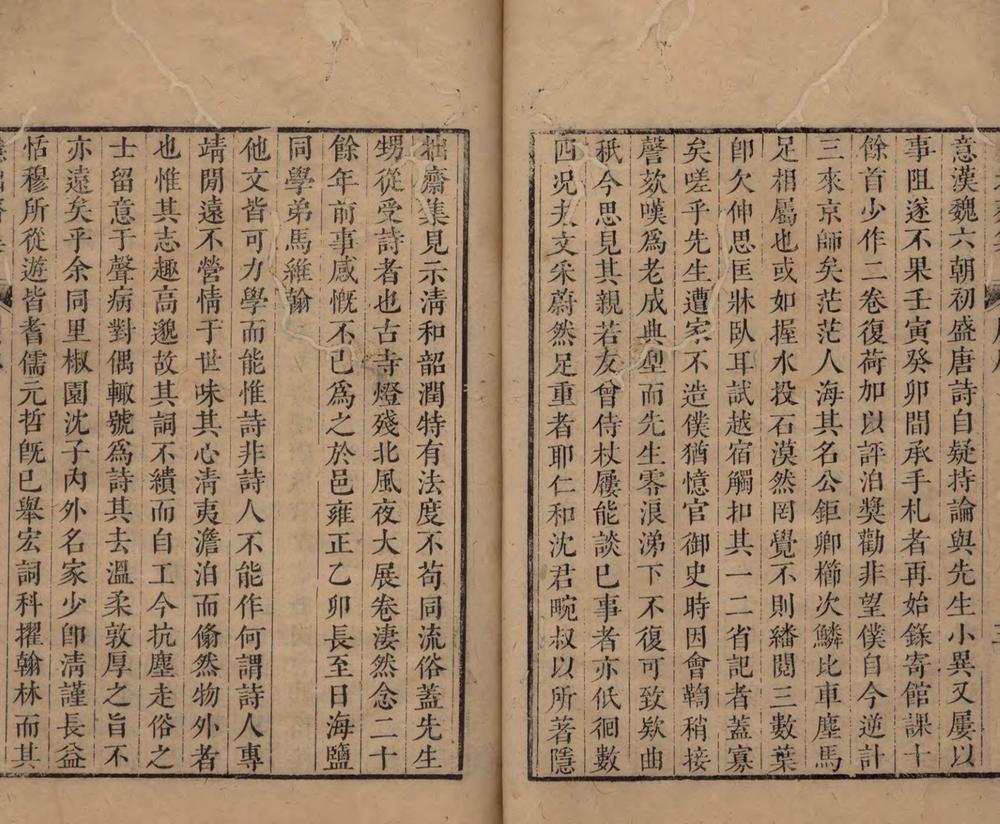 意漢魏六朝初盛唐詩自疑持論與先生小異又屢以
事阻遂不果壬寅癸卯間承手札者再始錄寄館課十
餘首少作二卷復荷加以評泊獎勸非望僕自今逆計
三來京師矣茫茫人海其名公鉅卿櫛次鱗比車塵馬
足相屬也或如握水投石漠然罔覺不則繙閱三數葉
卽欠伸思匡牀臥耳試越宿觸扣其一二省記者蓋寡
矣嗟乎先生遭家不造僕猶憶官御史時因會鞫稍接
謦欬嘆爲老成典型而先生零浪涕下不復可致欵曲
秖今思見其親若友曾侍杖屨能談已事者亦低徊數
四况夫文采蔚然足重者耶仁和沈君畹叔以所著隱
拙齋集見示淸和韶潤特有法度不苟同流俗蓋先生
甥從受詩者也古寺燈殘北風夜大展卷淒然念二十
餘年前事感慨不已爲之於邑雍正乙卯長至日海鹽
同學弟馬維翰
他文皆可力學而能惟詩非詩人不能作何謂詩人專
靖閒遠不營情于世味其心淸夷澹泊而翛然物外者
也惟其志趣高邈故其詞不繢而自工今抗塵走俗之
士留意于聲病對偶輒號爲詩其去溫柔敦厚之旨不
亦遠矣乎余同里椒園沈子內外名家少卽淸謹長益
恬穆所從遊皆耆儒元哲旣已舉宏詞科擢翰林而其